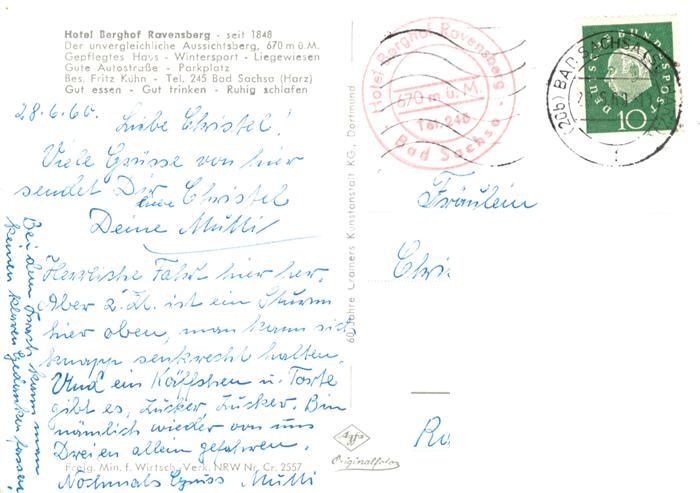 Hotel Berghof Ravensberg - seit 1848
Der unvergleichliche Aussichtsberg, 670 m ü. M.
Gepflegtes Haus - Wintersport - Liegewiesen
Gute Autostraße - Parkplatz
Bes. Fritz Kühn - Tel. 245 Bad Sachsa (Harz)
Gut essen - Gut trinken - Ruhig schlafen
28.6.60.
Liebe Christel!
Viele Grüsse von hier
sendet Dir liebe Christel
Deine Mutti
Herrliche Fahrt hier her.
Aber z. Zt. ist ein Sturm
hier oben, man kann sich
knapp senkrecht halten.
Und ein Käffchen u. Torte
gibt es, Zucker, Zucker. Bin
nämlich wieder von uns
Dreien allein gefahren.
Nochmals Gruss Mutti
Bei dem Krach kann man
keinen klaren Gedanken fassen.
Freig. Min. f. Wirtsch. Verk. NRW Nr. Cr. 2557
60 Jahre Cramers Kunstanstalt KG., Dortmund
Hotel Berghof Ravensberg
670 m ü. M.
Tel. 245
Bad Sachsa
(20b) BAD SACHSA
DEUTSCHE BUNDESPOST
10
Fräulein
Chri
Ra
Agfa
Originalfoto